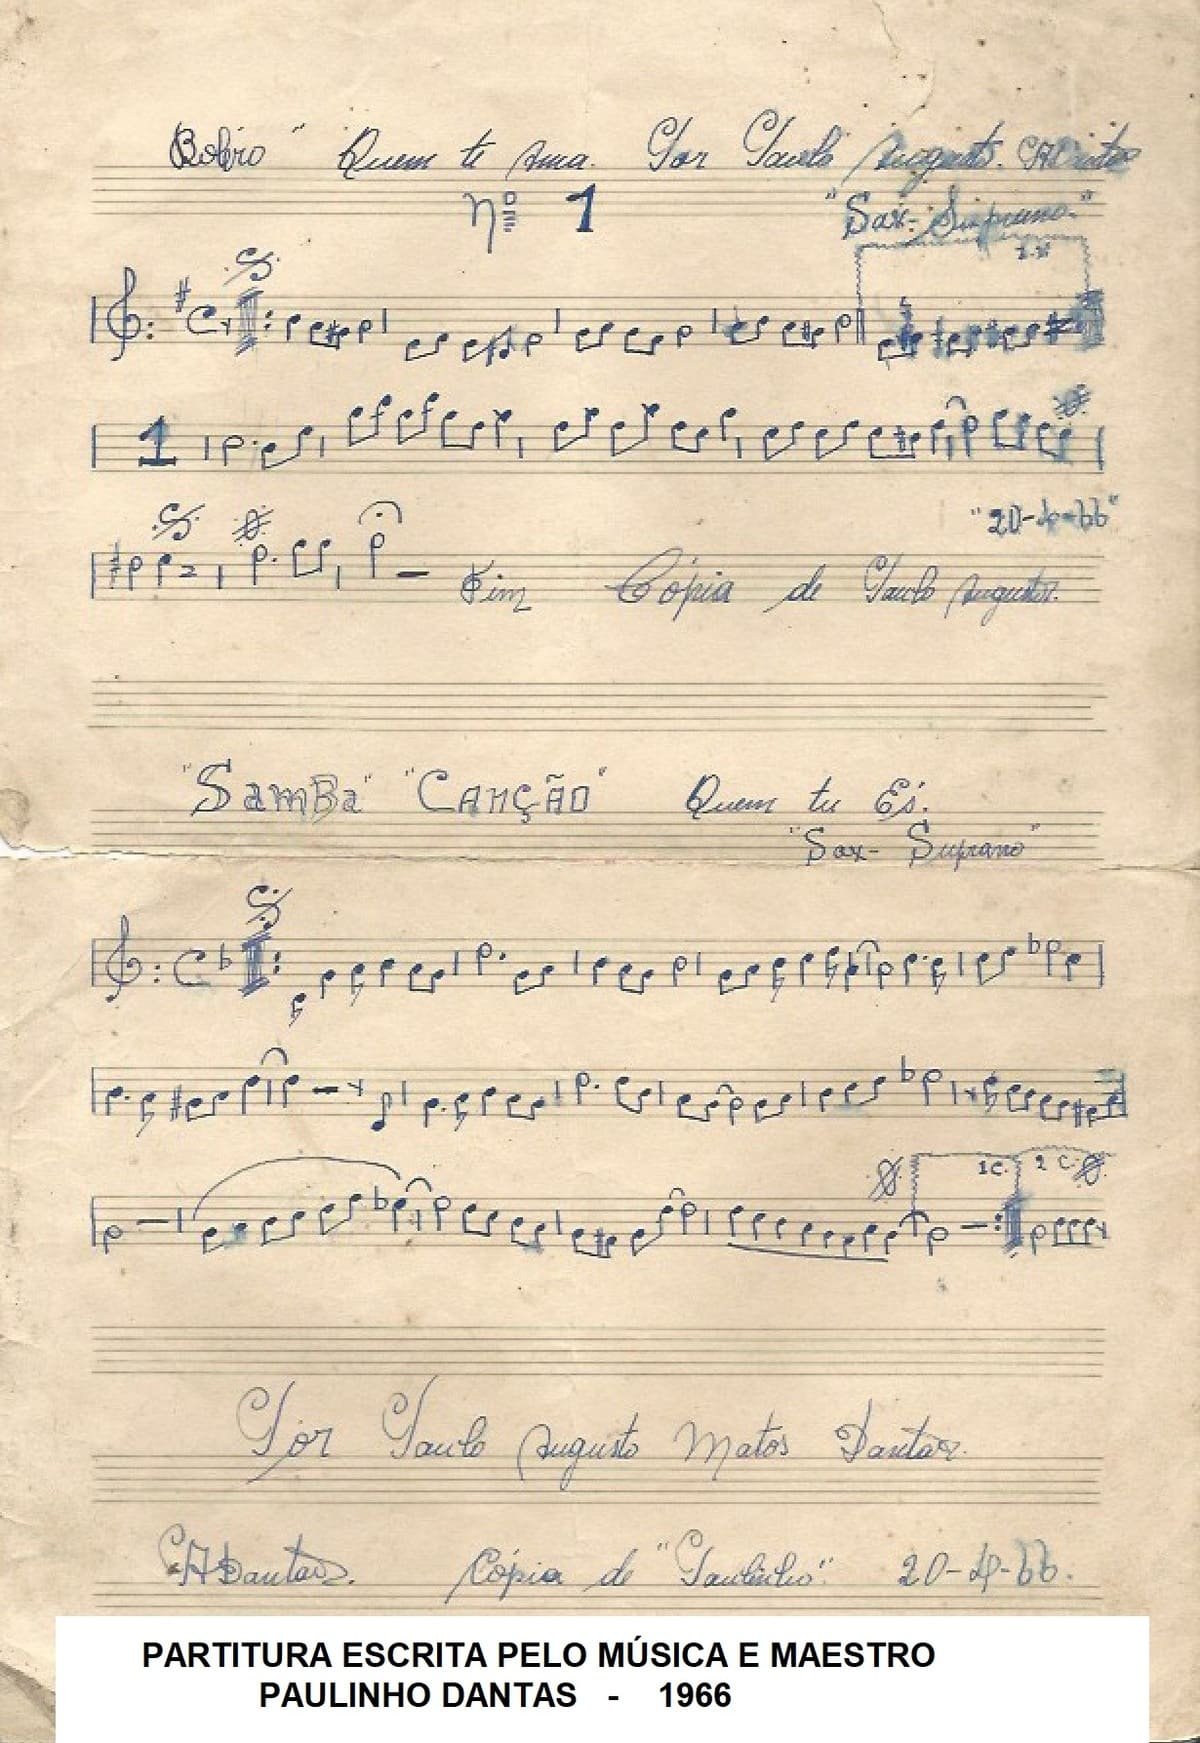 Boléro "Quem te Ama. Por Paulo Augusto.
Nº 1
"Sax-Suprano."
1
"20-4-66"
Fim Cópia de Paulo Augusto.
"SamBa" "CANÇÃO" Quem tu És.
"Sax-Suprano"
1C. 2C.
Por Paulo Augusto Matos Dantas.
PADantas. Cópia de "Paulinho". 20-4-66.
PARTITURA ESCRITA PELO MÚSICA E MAESTRO
PAULINHO DANTAS - 1966